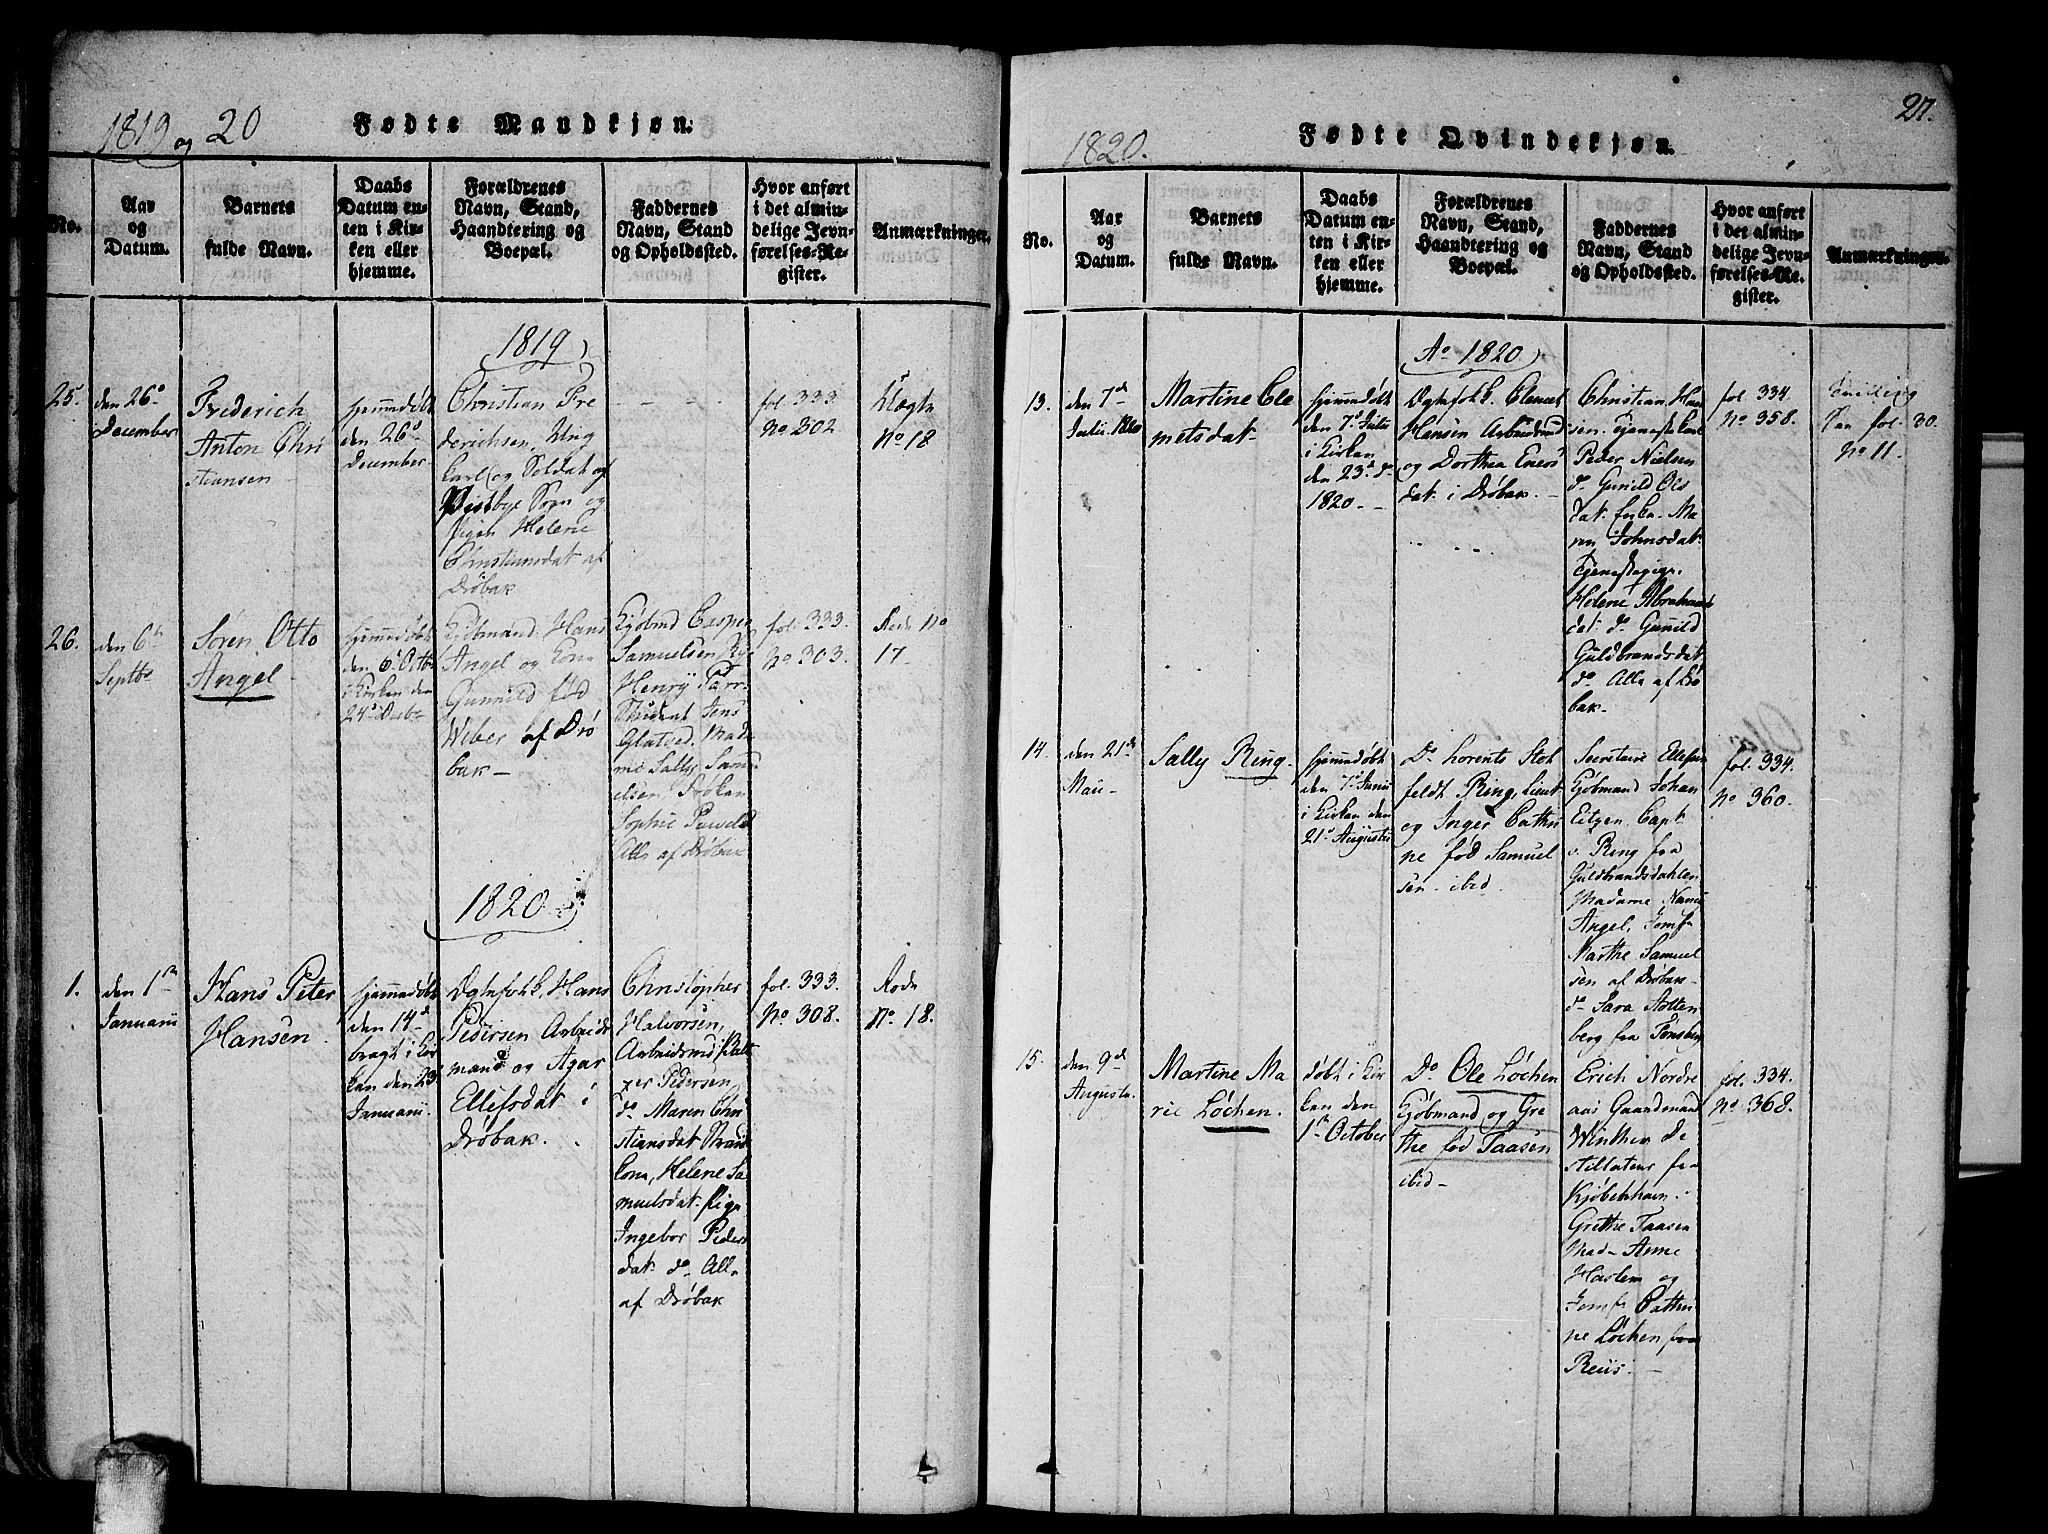 1819 og 20
Fødte Mandkjøn.
No.
Aar
og
Datum.
Barnets
fulde Navn.
Daabs
Datum en-
ten i Kir-
ken eller
hjemme.
Forældrenes
Navn, Stand,
Haandtering og
Boepæl.
Faddernes
Navn, Stand
og Opholdssted.
Hvor anført
i det almin-
delige Jevn-
førelses-Re-
gister.
Anmærkninger.
1819
25.
den 26d
December
Frederich
Anton Chri
stiansen
hjemmedøbt
den 26d
December
Christian Fre
derichsen, Ung
karl og Soldat af
Vestbye Sogn og
Pigen Helene
Christiansdat af
Drøbak
fol. 333
No 302
No 18
26.
den 6t
Septbr
Søren Otto
Angel
hjemmedøbt
den 6 Octb
i Kirken den
24d Decbr
Kjøbmand Hans
Angel og Kone
Gunnild fød
Weber af Drø
bak
Kjøbmd Casper
Samuelsen
Henry Parr
Student Jens
Mada
me Sally Samu
elsen Frøken
Sophie
Alle af Drøbak
fol. 333.
No 303.
Rode No
17
1820
1.
den 1ste
Januarii
Hans Peter
Hansen
hjemmedøbt
den 14d
bragt i Kir
ken den 23
Januarii
Ægtefolk, Hans
Pedersen Arbeids
mand og Agar
Ellefsdat i
Drøbak.
Christopher
Halvorsen,
Arbeidsmd, Balt
zer Pedersen
do Maren Chri
stiansdat
kone, Helene Sa
muelsdat Pige
Ingebor Peders
dat do Alle
af Drøbak
fol. 333.
No 308.
Rode
No 18.
27.
1820.
Fødte Qvindekjøn.
No.
Aar
og
Datum.
Barnets
fulde Navn.
Daabs
Datum en-
ten i Kir-
ken eller
hjemme.
Forældrenes
Navn, Stand,
Haandtering og
Boepæl.
Faddernes
Navn, Stand
og Opholdssted.
Hvor anført
i det almin-
delige Jevn-
førelses-Re-
gister.
Anmærkninger.
Ao 1820
13.
den 7d
Julii
Martine Cle
metsdat
hjemmedøbt
den 7d Julii
i Kirken
den 23d do
1820
Ægtefolk. Clemet
Hansen Arbeidsmd
og Dorthea Eners
dat i Drøbak.
Christian Han
sen Tjenestekarl
Peder Nielsen
do Gunild Ols
dat Enke. Ma
ren Johnsdat
Tjenestepige.
Helene Abrahams
dat do Gunild
Guldbrandsdat
do Alle af Drø
bak
fol 334.
No 358.
Tvilling
fol. 30.
No 11.
14.
den 21de
Maii
Sally Ring.
hjemmedøbt
den 7d Junii
i Kirken den
21d Augusti
Do Lorents Stok
feldt Ring, Lieut
og Inger Cathri
ne fød Samuel
sen ibid.
Secretaire Ellefsen
Kjøbmand Johan
Eitzen, Capt
v. Ring fra
Guldbrandsdahlen
Madame
Angel, Jomfr
Marthe Samuel
sen af Drøbak
do Sara Stolten
berg fra Tønsberg
fol. 334.
No 360.
15.
den 9d
Augusti
Martine Ma
rie Løchen.
døbt i Kir
ken den
1ste October
Do Ole Løchen
Kjøbmand og Gre
the fød Taasen
ibid
Erich Nordre
aas Gaardmand
Winther De
stillateur fra
Kjøbenhavn.
Grethe Taasen
Mad Anne
Haslem og
Jomfr Cathri
ne Løchen, fra
Reiis.
fol. 334.
No 368.